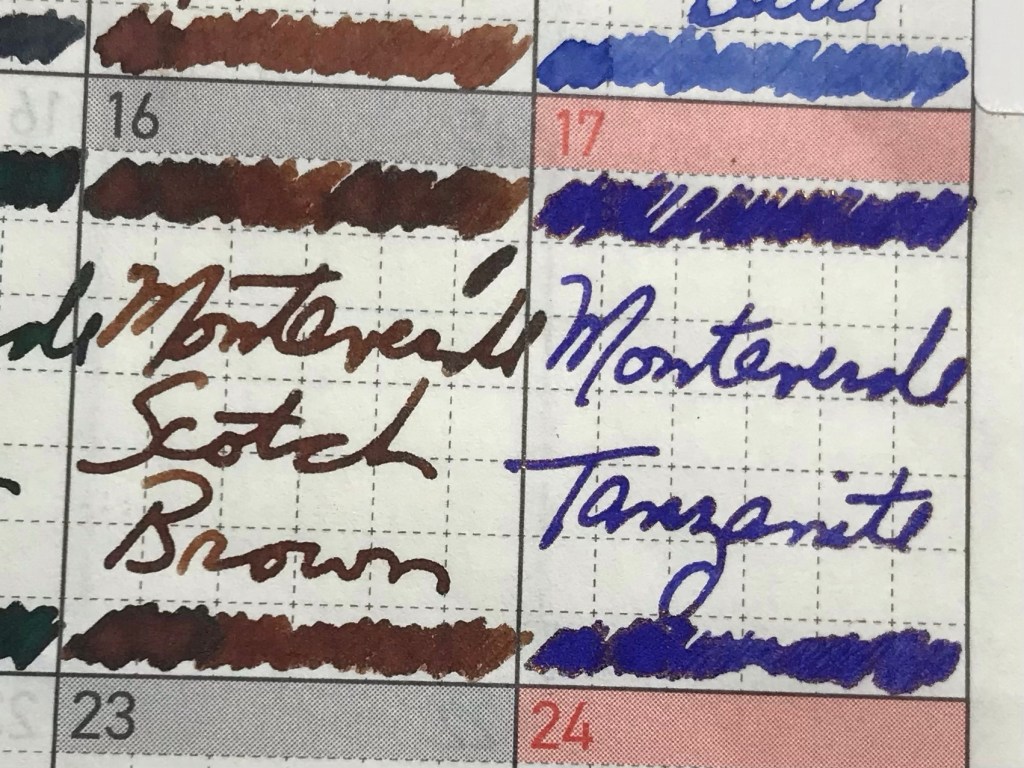 16
17
Monteverde
Scotch
Brown
Monteverde
Tanzanite
23
24